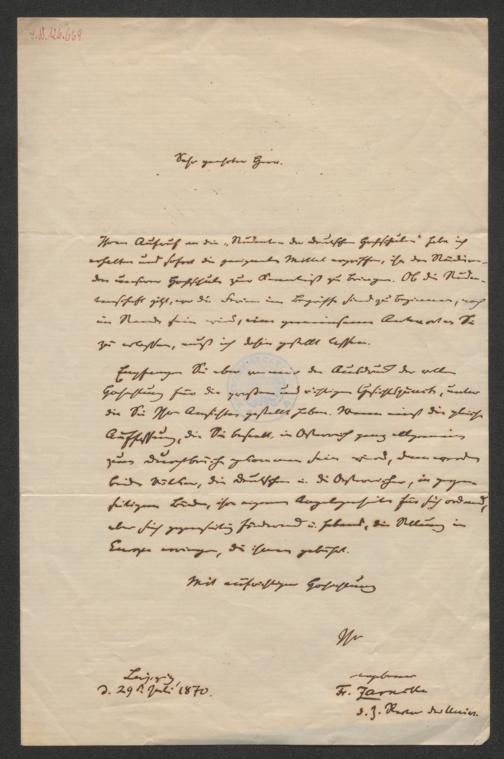 I.N. 126.669
Sehr geehrter Herr.
Ihren Aufruf an die „Studenten der deutschen Hochschulen“ habe ich
erhalten und sofort die geeigneten Mittel ergriffen, ihn den Studiren-
den unserer Hochschule zur Kenntniß zu bringen. Ob die Studen-
tenschaft jetzt, wo die Ferien im Begriffe sind zu beginnen, noch
im Stande sein wird, eine gemeinsame Antwort an Sie
zu erlassen, muß ich dahin gestellt lassen.
Empfangen Sie aber von mir den Ausdruck der vollen
Hochachtung für die großen und richtigen Gesichtspuncte, unter
die Sie Ihre Ansichten gestellt haben. Wenn einst die gleiche
Auffassung, die Sie beseelt, in Österreich ganz allgemein
zum Durchbruche gekommen sein wird, dann werden
beide Völker, die Deutschen u. die Österreicher, in gegen-
seitigem Bunde, ihre eigenen Angelegenheiten für sich ordnend,
aber sich gegenseitig fördernd u. hebend, die Stellung in
Europa erringen, die ihnen gebührt.
Mit aufrichtiger Hochachtung
Ihr
ergebener
Leipzig
Fr. Zarncke
d. 29 Juli 1870.
d. Z. Rector der Univ.